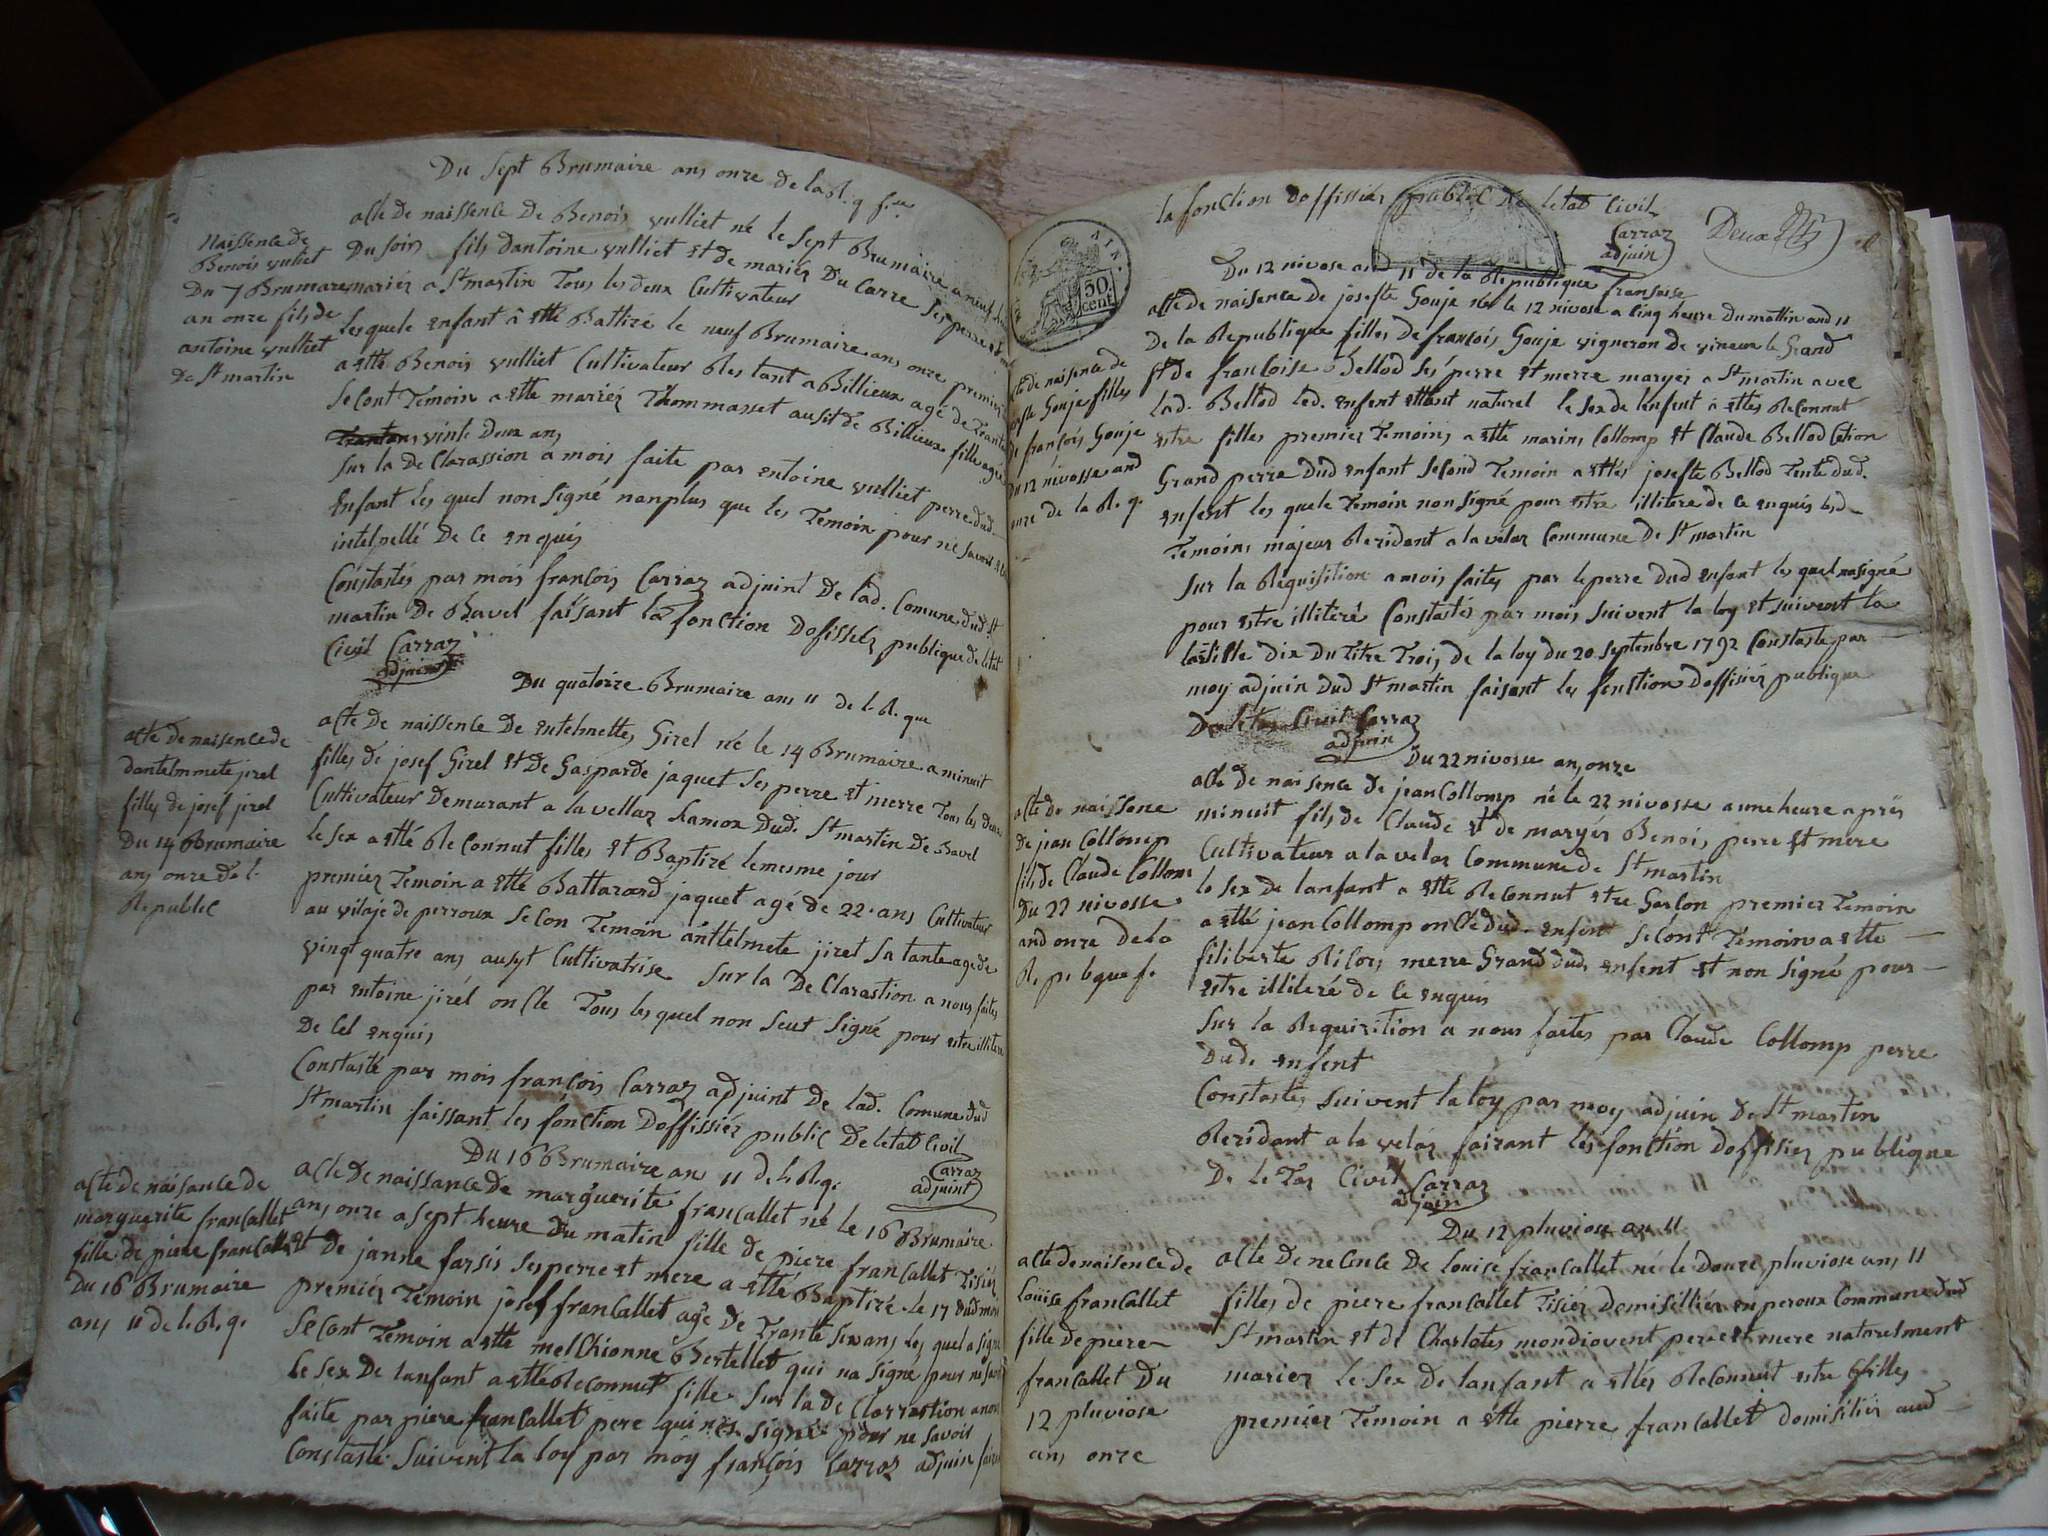 Du Sept Brumaire ans onze de la R. q f.se
Naissence de
Benois vulliet
Du 7 Brumare
an onze fils de
antoine vulliet
De St martin
acte de naissence De Benois vulliet né le sept Brumaire a neuf
Du soir fils dantoine vulliet et de mariés Du Carre ses perre et
mariés a St martin Tous les deux Cultivateur
les quele enfant â etté Battizé le neuf Brumaire ans onze premier
a etté Benois vulliet Cultivateur Res tant a Billieux agé de Trante
Second Temoin a etté mariés Thommasset ausit de Billieux fille agée
vinte Deux ans
Sur la De Clarassion a mois faite par entoine vulliet perre dud
Enfant les quel non Signé nonplus que les Temoin pour ne savoir
intelpellé De Ce enquis
Constastés par mois françois Carraz adjuint De lad. Comune dud St
martin De Bavel faisant la fonction Dofissels publique de letat
Civil Carraz
adjuint
Du quatorze Brumaire ans 11 de l. R. que
acte de naisence de
dantelmmete jirel
fille de josef jirel
Du 14 Brumaire
ans onze de l.
Republec
acte De naissence De entelmettes Girel né le 14 Brumaire a minuit
filles de josef Girel et De Gasparde jaquet Ses perre et merre Tous les deux
Cultivateur Demurant a la vellaz hamox Dud. St martin De Bavel
le sex a etté Reconnut filles et Baptizé lemesme jour
premier Temoin a etté Battarard jaquet agé de 22 ans Cultivateur
au vilaje de perroux Secon Temoin anttelmete jirel Sa tante age de
vingt quatre ans ausyt Cultivatrise Sur la De Clarastion a nous faites
par entoine jirel oncle Tous les quel non Seut Signé pour estre illitere
De Cel enquis
Constasté par mois françois Carraz adjuint De lad. Comune dud
St martin faissant les fonction Doffissier public De letat Civil
Carraz
adjuint
Du 16 Brumaire an 11 de l. R. q.
acte de naisance de
marguerite francallet
fille de piere francallet
Du 16 Brumaire
ans 11 de l. R. q.
acte De naissance de marguerite francallet né le 16 Brumaire
ans onze a sept heure Du matin fille de piere francallet Tisier
et De janne farsis ses perre et mere a etté Baptizé le 17 dud mois
premiér Temoin josef francallet agé De Trante Six ans les quel a signe
Secont Temoin a etté melChionne Bertellet qui na Signé pour ne
le Sex De lanfant a etté Reconnut fille Sur la de Clarrastion a nous
faite par piere francallet pere qui na signé pour ne savoir
Constasté Suivent la loy par moy françois Carraz adjuin
la fonction doffissier publec de letat Civil
Carraz
adjuin
Deux
50
cent
Du 12 nivose and 11 de la Republique fransaise
acte de naisence de
josefte Gouje filles
de françois Gouje
Du 12 nivosse and
onze de la R. q.
acte de naisence de josefte Gouje né le 12 nivose a cinq heure Du mattin and 11
de la Republique filles de françois Gouje vigneron de vineux le Grand
et de francoise Bellod Ses perre et merre maryes a St martin avec
lad. Bellod led. enfent ettant naturel le Sex de lenfent a ettes Reconnut
estre filles premier Temoins a etté marins Collomp et Claude Bellod
Grand perre Dud enfant Second Temoin a ettés josefte Bellod Tente dud.
enfent les quele Temoin non signé pour estre illitere de Ce enquis lesd.
Temoins majeur Rezidant a la velaz Commune De St martin
Sur la Requisition a mois faites par le perre Dud enfant les quel na signé
pour estre illitéré Constastés par mois Suivent la loy et suivent la
lartiste Dix Du titre Trois de la loy du 20 septenbre 1792 Constaste par
moy adjuin Dud St martin faisant les fonstion Doffisier publique
De letas Civil Carraz
adjuin
Du 22 nivosse ans onze
acte de naissene
de jean Collomp
fils de Claude Collom
Du 22 nivosse
and onze de la
R. publique f.
acte de naisence De jean Collomp né le 22 nivosse a une heure aprés
minuit fils de Claude et de maryér Benois perre et mere
Cultivateur a la velaz Commune de St martin
le sex de lanfant a etté Reconnut etre Garson premier Temoin
a etté jean Collomp oncle dud. enfent Secont Temoin a etté
filiberte Rilos merre Grand dud. enfent et non signé pour
estre illiteré de Ce enquis
Sur la Requizition a nous faites par Claude Collomp perre
Dud. enfent
Constastes Suivent la loy par moy adjuin De St martin
Rezidant a la velaz faizant les fonction Doffisier publique
De le Tas Civil Carraz
adjuin
Du 12 pluviose an 11
acte de naisence de
louise francallet
fille de piere
francallet Du
12 pluviose
ans onze
acte De necence De louise francallet né le Douze pluviose ans 11
filles de piere francallet Tisier Demisillier en peroux Commune dud
St martin et de Charlotes mondiovent pere et mere naturelment
mariez le Sex De lanfant a ettés Reconnut estre filles
premier Temoin a etté pierre francallet domisilies aud